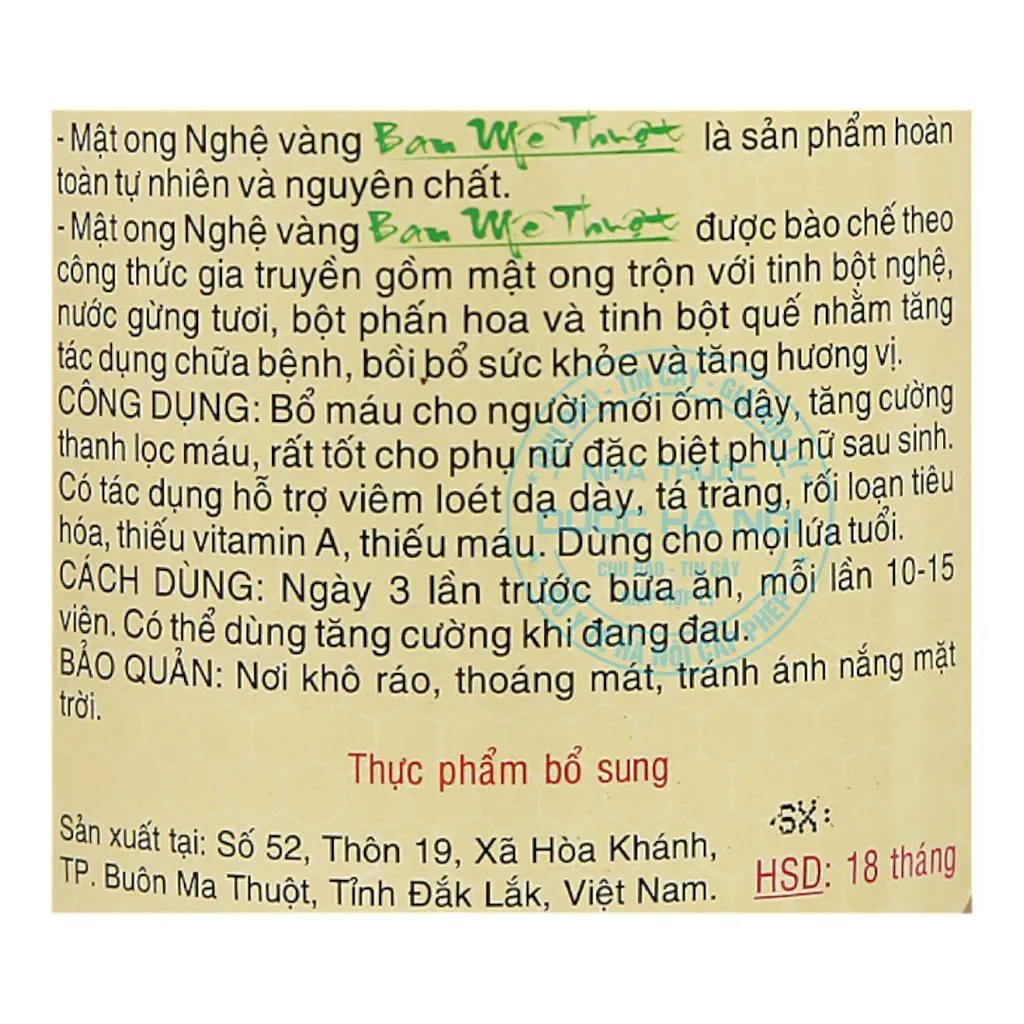 - Mật ong Nghệ vàng Ban Mê Thuột là sản phẩm hoàn
toàn tự nhiên và nguyên chất.
- Mật ong Nghệ vàng Ban Mê Thuột được bào chế theo
công thức gia truyền gồm mật ong trộn với tinh bột nghệ,
nước gừng tươi, bột phấn hoa và tinh bột quế nhằm tăng
tác dụng chữa bệnh, bồi bổ sức khỏe và tăng hương vị.
CÔNG DỤNG: Bổ máu cho người mới ốm dậy, tăng cường
thanh lọc máu, rất tốt cho phụ nữ đặc biệt phụ nữ sau sinh.
Có tác dụng hỗ trợ viêm loét dạ dày, tá tràng, rối loạn tiêu
hóa, thiếu vitamin A, thiếu máu. Dùng cho mọi lứa tuổi.
CÁCH DÙNG: Ngày 3 lần trước bữa ăn, mỗi lần 10-15
viên. Có thể dùng tăng cường khi đang đau.
BẢO QUẢN: Nơi khô ráo, thoáng mát, tránh ánh nắng mặt
trời.
Thực phẩm bổ sung
Sản xuất tại: Số 52, Thôn 19, Xã Hòa Khánh,
TP. Buôn Ma Thuột, Tỉnh Đắk Lắk, Việt Nam.
SX:
HSD: 18 tháng
CHU ĐÁO - TIN CẬY -
NHÀ THUỐC
DƯỢC HÀ NỘI
CHU ĐÁO - TIN CẬY
GIÁ HỢP LÝ
SỞ Y TẾ HÀ NỘI CẤP PHÉP